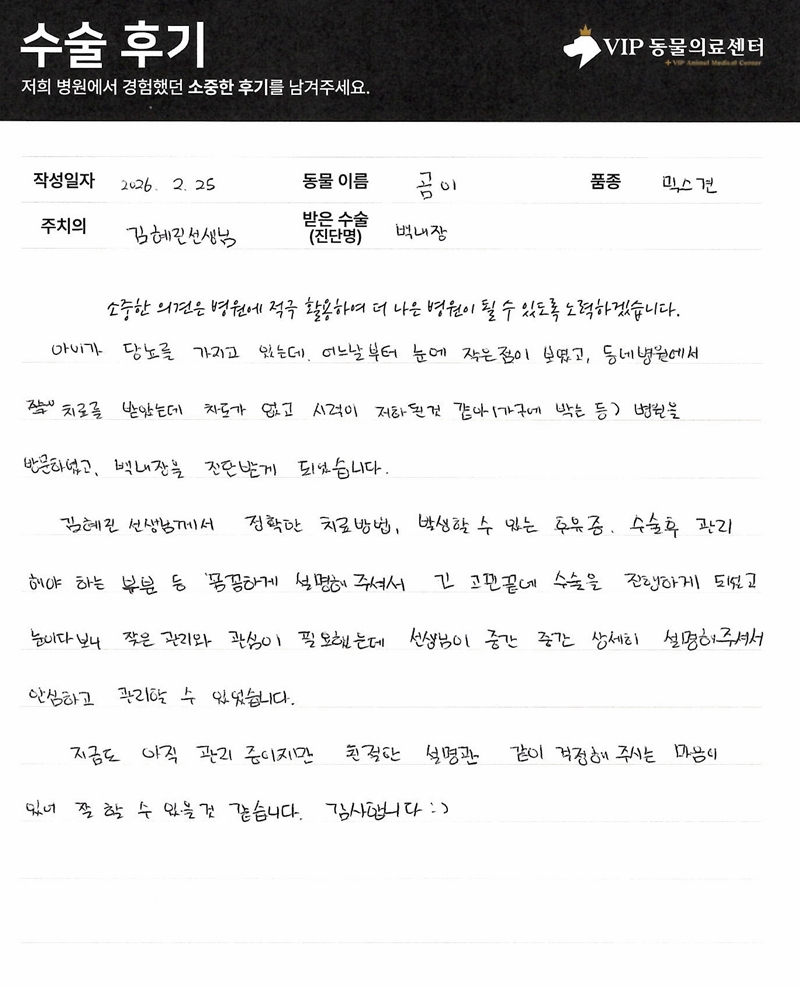 수술 후기
저희 병원에서 경험했던 소중한 후기를 남겨주세요.
VIP 동물의료센터
+ VIP Animal Medical Center
작성일자 2026. 2. 25 동물 이름 곰이 품종 믹스견
주치의 김혜진선생님 받은 수술 (진단명) 백내장
소중한 의견은 병원에 적극 활용하여 더 나은 병원이 될 수 있도록 노력하겠습니다.
아이가 당뇨를 가지고 있는데, 어느날부터 눈에 작은점이 보였고, 동네병원에서
치료를 받았는데 차도가 없고 시력이 저하된것 같아(가구에 박는 등) 병원을
방문하였고, 백내장을 진단받게 되었습니다.
김혜진 선생님께서 정확한 치료방법, 발생할 수 있는 후유증, 수술후 관리
해야 하는 부분 등 꼼꼼하게 설명해주셔서 긴 고민끝에 수술을 진행하게 되었고
눈이다보니 잦은 관리와 관심이 필요했는데 선생님이 중간 중간 상세히 설명해주셔서
안심하고 관리할 수 있었습니다.
지금도 아직 관리 중이지만 친절한 설명과 같이 걱정해 주시는 마음이
있어 잘 할 수 있을것 같습니다. 감사합니다 :)